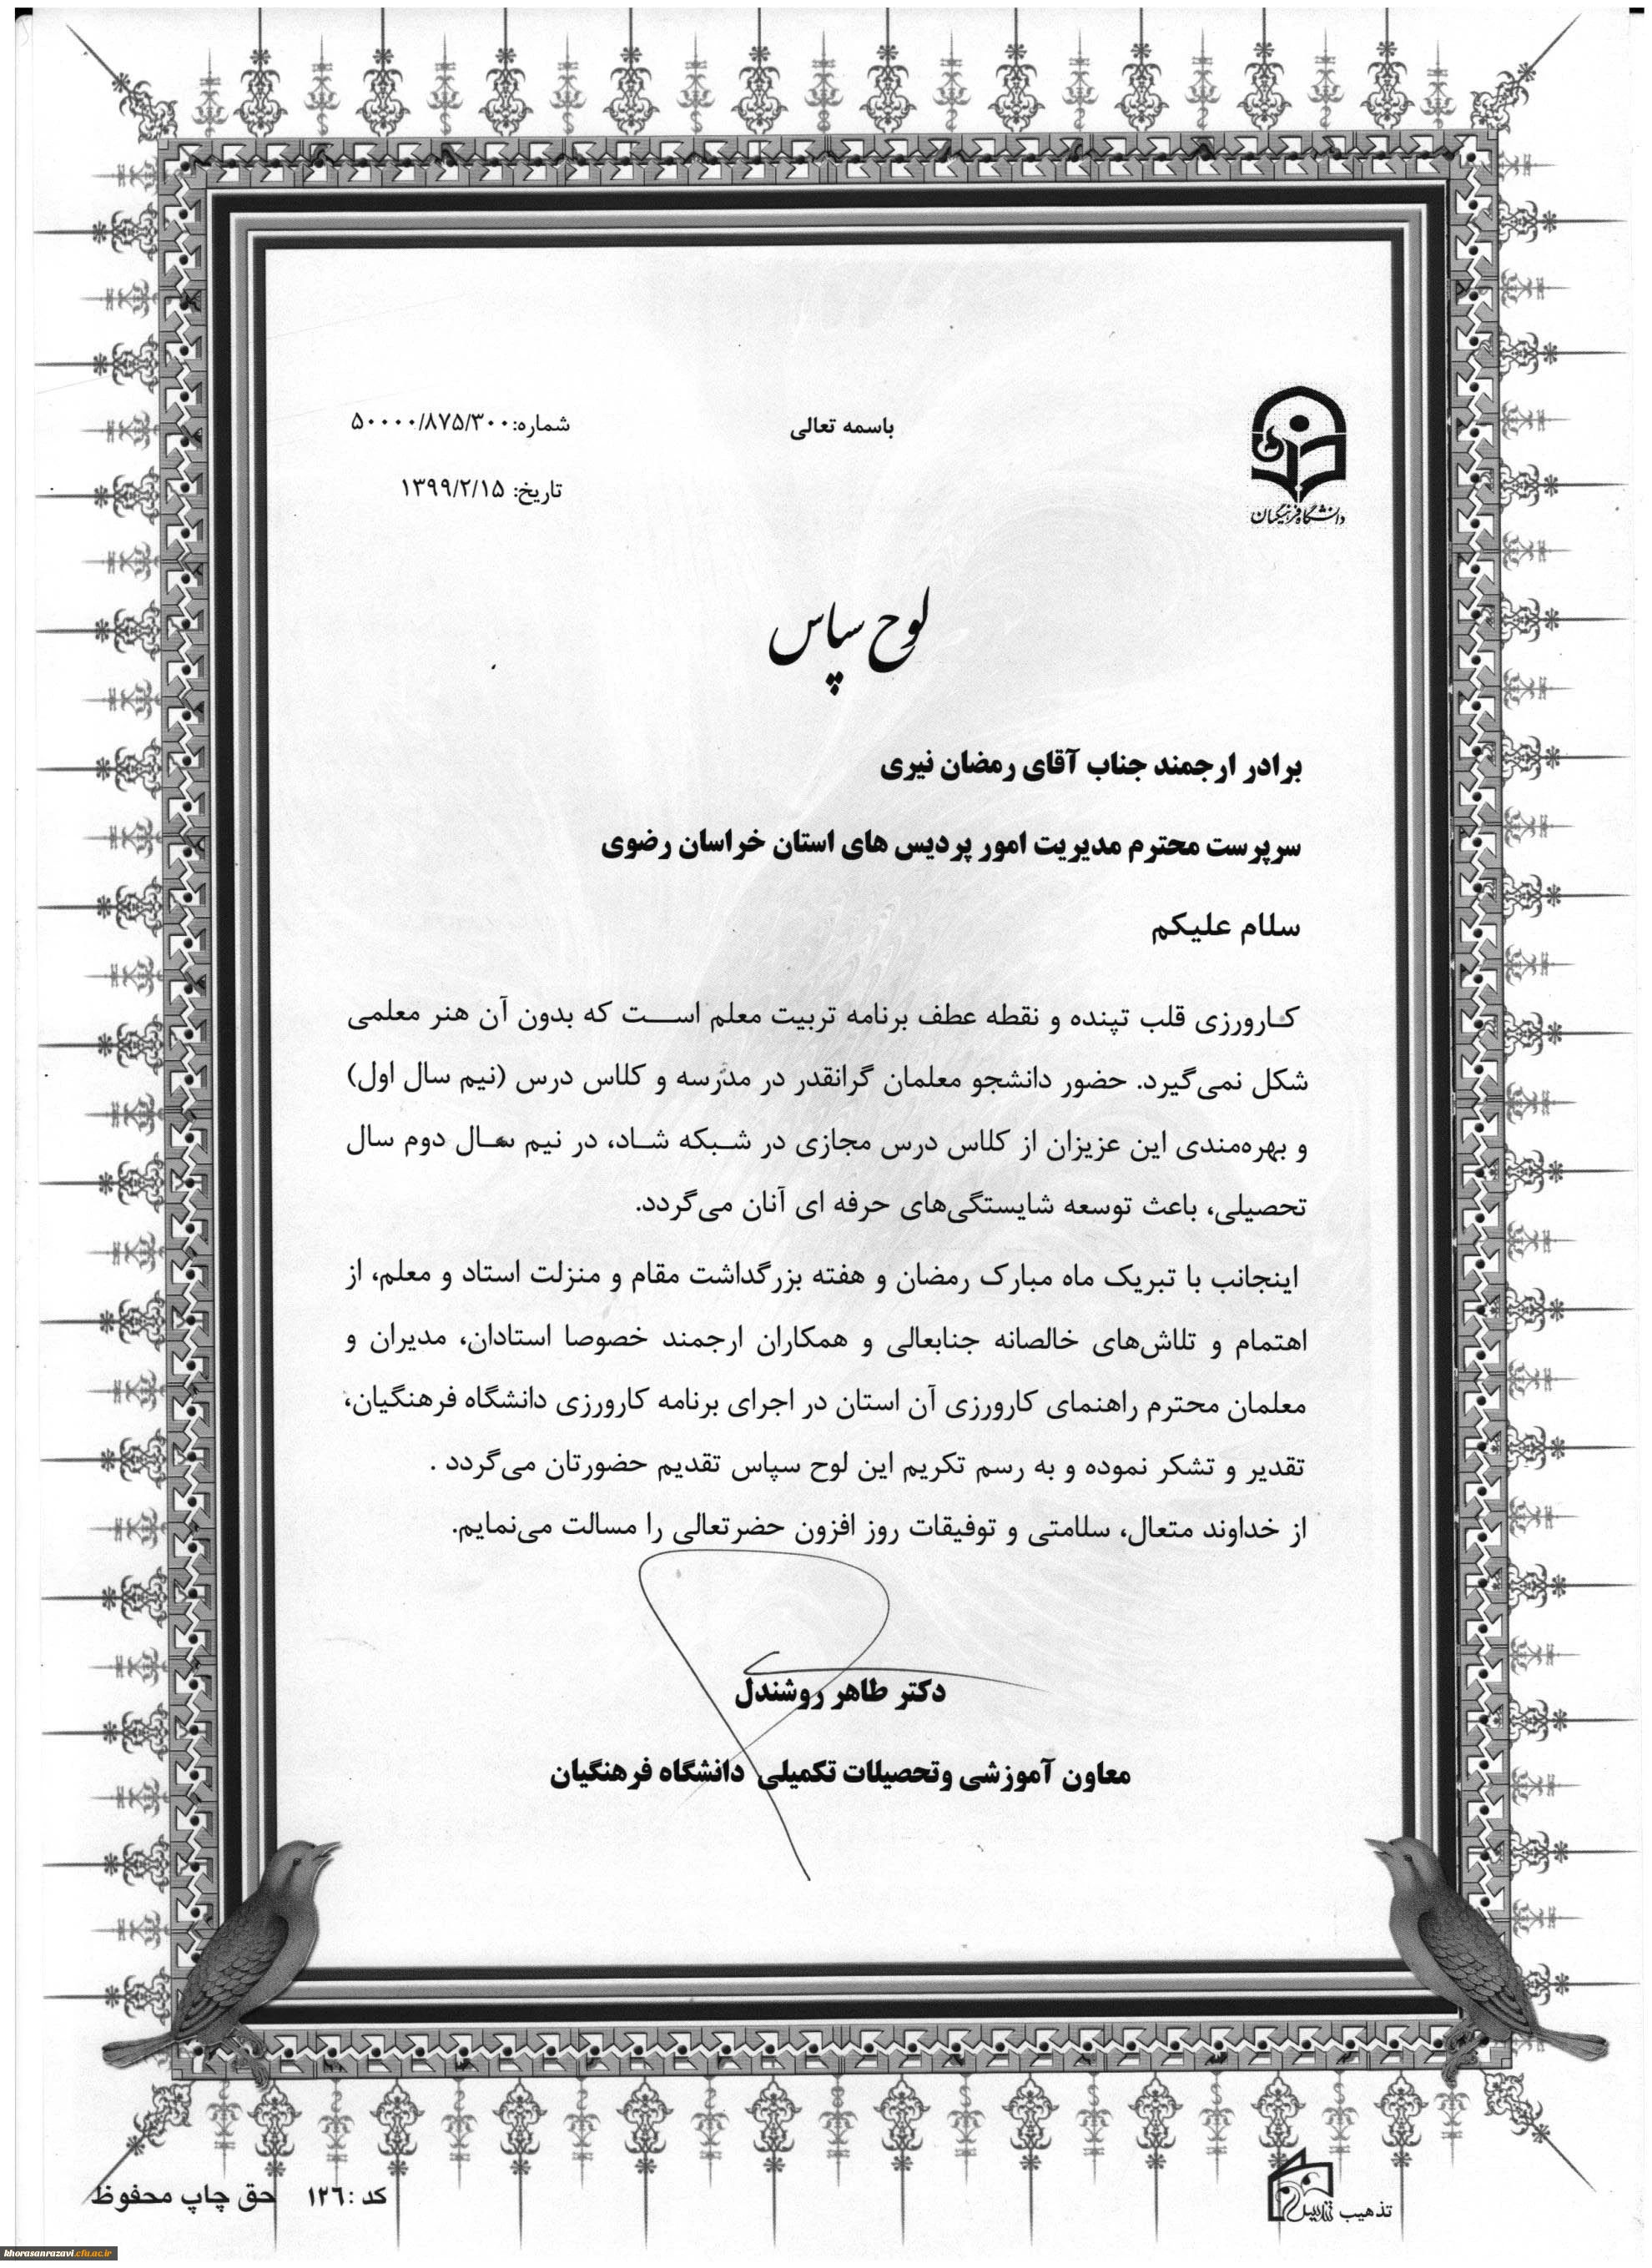 باسمه تعالی
شماره:۵۰۰۰۰/۸۷۵/۳۰۰
تاریخ: ۱۳۹۹/۲/۱۵
دانشگاه فرهنگیان
لوح سپاس
برادر ارجمند جناب آقای رمضان نیری
سرپرست محترم مدیریت امور پردیس های استان خراسان رضوی
سلام علیکم
کارورزی قلب تپنده و نقطه عطف برنامه تربیت معلم است که بدون آن هنر معلمی
شکل نمی‌گیرد. حضور دانشجو معلمان گرانقدر در مدرسه و کلاس درس (نیم سال اول)
و بهره‌مندی این عزیزان از کلاس درس مجازی در شبکه شاد، در نیم سال دوم سال
تحصیلی، باعث توسعه شایستگی‌های حرفه ای آنان می‌گردد.
اینجانب با تبریک ماه مبارک رمضان و هفته بزرگداشت مقام و منزلت استاد و معلم، از
اهتمام و تلاش‌های خالصانه جنابعالی و همکاران ارجمند خصوصا استادان، مدیران و
معلمان محترم راهنمای کارورزی آن استان در اجرای برنامه کارورزی دانشگاه فرهنگیان،
تقدیر و تشکر نموده و به رسم تکریم این لوح سپاس تقدیم حضورتان می‌گردد .
از خداوند متعال، سلامتی و توفیقات روز افزون حضرتعالی را مسالت می‌نمایم.
دکتر طاهر روشندل
معاون آموزشی وتحصیلات تکمیلی دانشگاه فرهنگیان
تذهیب
کد :۱۲۶ حق چاپ محفوظ
khorasanrazavi.cfu.ac.ir